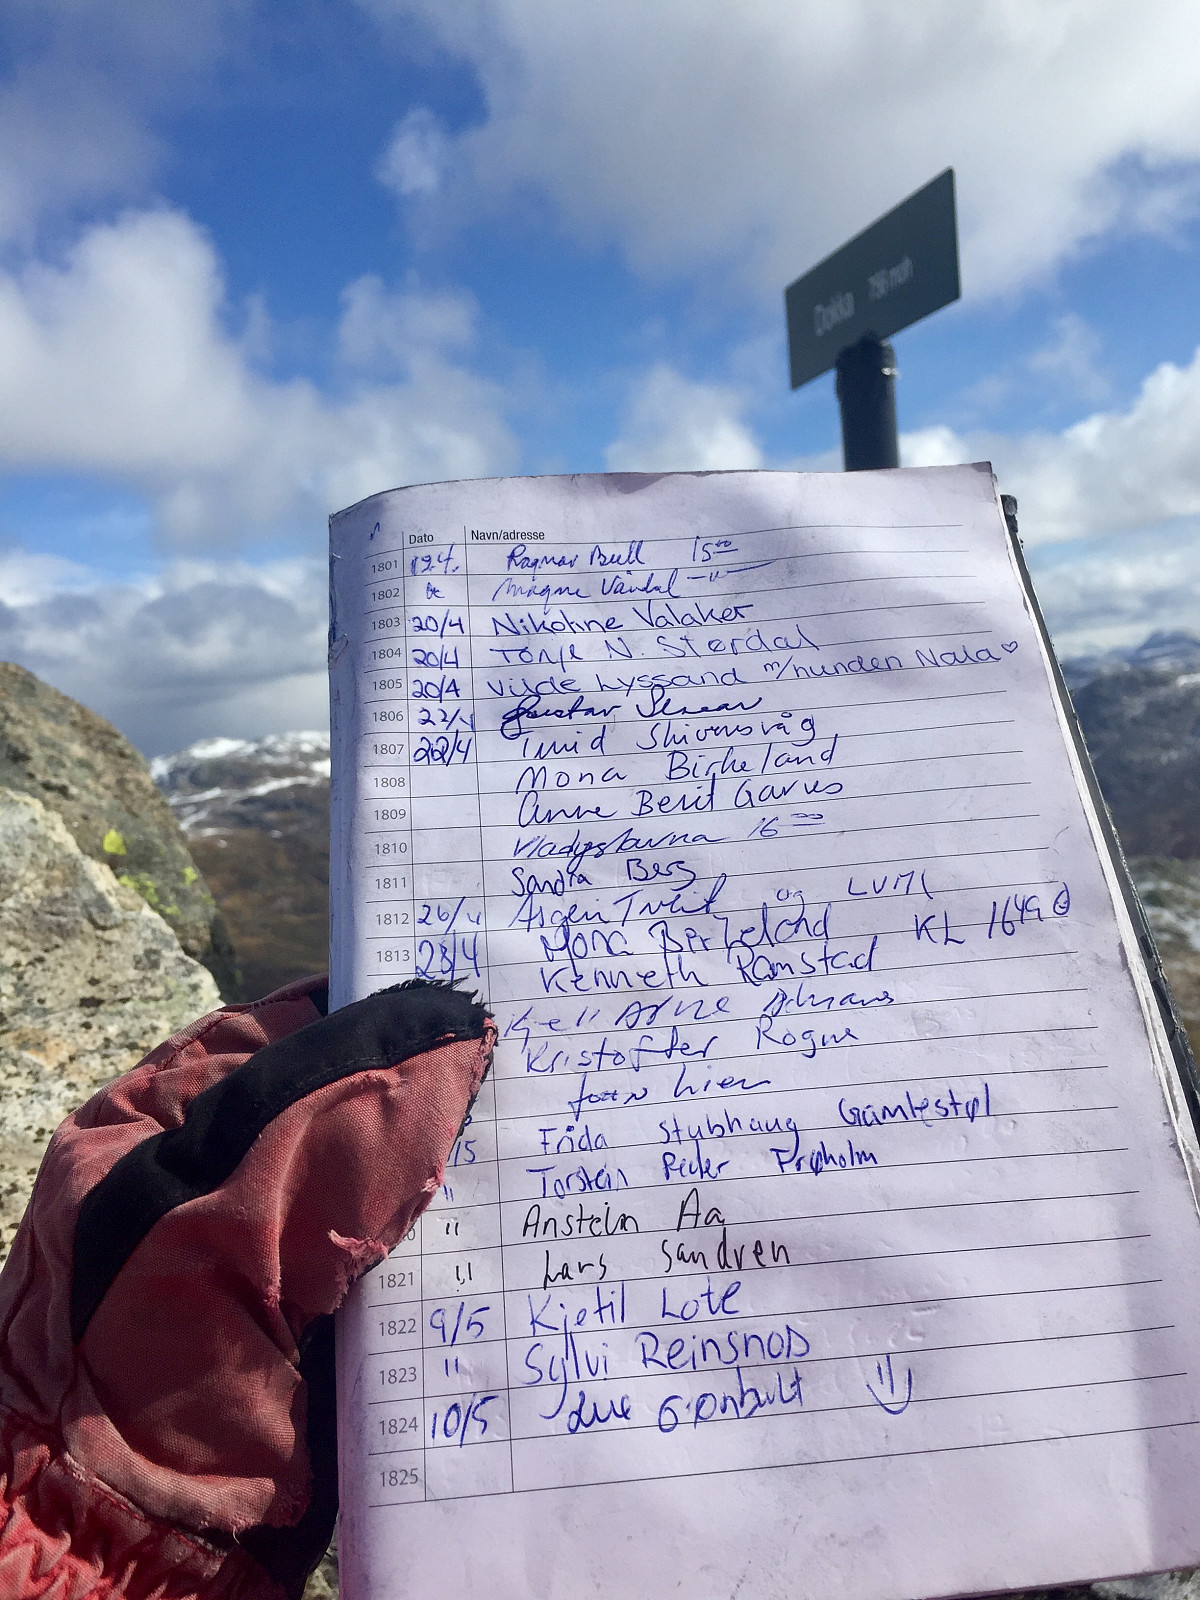 Dokka 756 moh
Dato Navn/adresse
1801 19.4. Ragnar Bull 15⁰⁰
1802 Magne Vandal —"—
1803 20/4 Nikoline Valaker
1804 20/4 Tonje N. Størdal
1805 20/4 Vilde Lyssand m/hunden Nala ♡
1806 22/4 Gustav
1807 22/4 Turid
1808 Mona Birkeland
1809 Anne Berit Garnes
1810 16⁰⁰
1811 Sandra Berg
1812 26/4 Asgeir og LUMI
1813 28/4 Mona Birkeland KL 1649
Kenneth Ramstad
Kjell Arne
Kristoffer Rogne
hier
/5 Frida Stubhaug Gamlestøl
" Torstein Peder Frøholm
" Anstein Aa
1821 " Lars Sandven
1822 9/5 Kjetil Lote
1823 " Sylvi Reinsnos
1824 10/5
1825